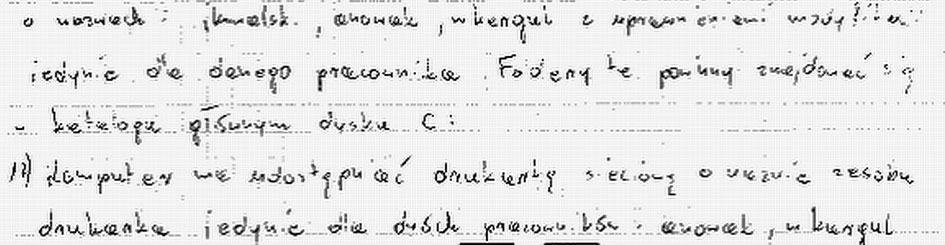 o nazwach: jkowalsk, anowak, wkergul z uprawnieniami modyfikacji
jedynie dla danego pracownika. Foldery te powinny znajdować się
w katalogu głównym dysku C:
12) Komputer ma udostępniać drukarkę sieciową o nazwie zasobu
drukarka jedynie dla dwóch pracowników: anowak, wkergul